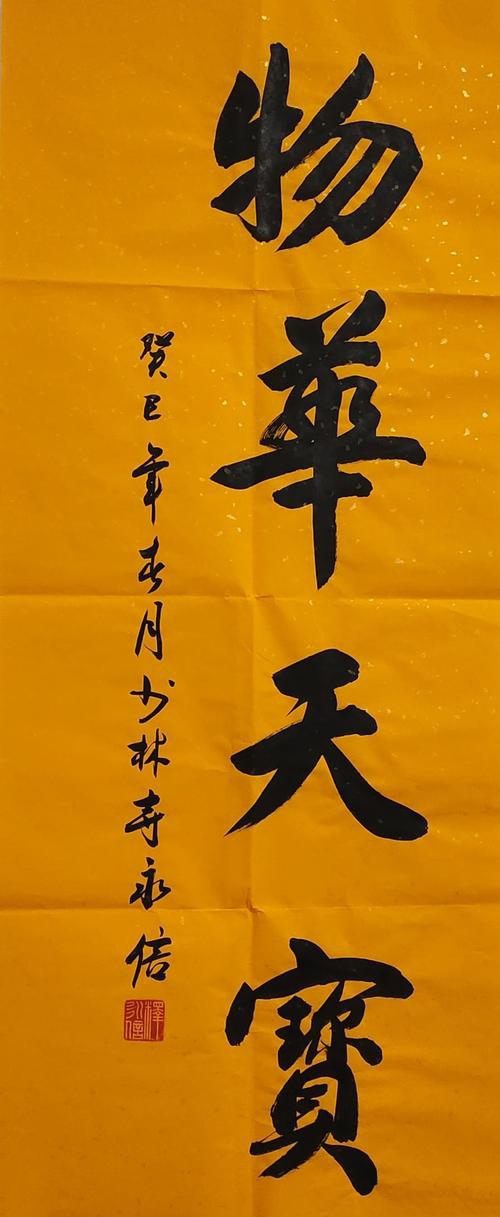 物華天寶
癸巳年春月少林寺永信
釋永信